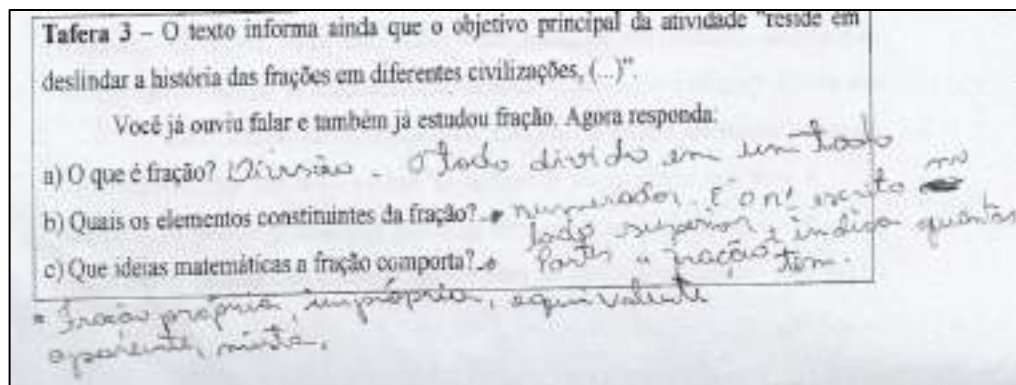 Tafera 3 – O texto informa ainda que o objetivo principal da atividade "reside em
deslindar a história das frações em diferentes civilizações, (...)".
Você já ouviu falar e também já estudou fração. Agora responda:
a) O que é fração? Divisão - O todo divido em um todo
b) Quais os elementos constituintes da fração? numerador. É o nº escrito no
lado superior e indica quantas
c) Que ideias matemáticas a fração comporta? Partes a fração tem.
* Fração própria, imprópria, equivalente
aparente, mista,